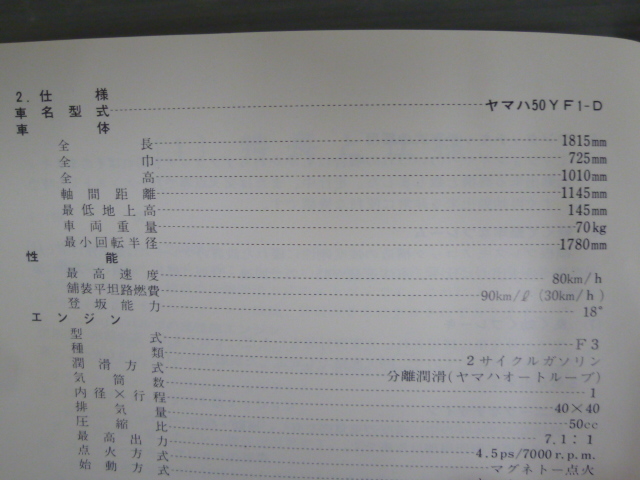 2. 仕様
車名型式 ヤマハ50YF1-D
車体
全長 1815mm
全巾 725mm
全高 1010mm
軸間距離 1145mm
最低地上高 145mm
車両重量 70kg
最小回転半径 1780mm
性能
最高速度 80km/h
舗装平坦路燃費 90km/ℓ (30km/h)
登坂能力 18°
エンジン
型式 F3
種類 2サイクルガソリン
潤滑方式 分離潤滑(ヤマハオートルーブ)
気筒数 1
内径×行程 40×40
排気量 50cc
圧縮比 7.1:1
最高出力 4.5ps/7000r.p.m.
点火方式 マグネトー点火
始動方式